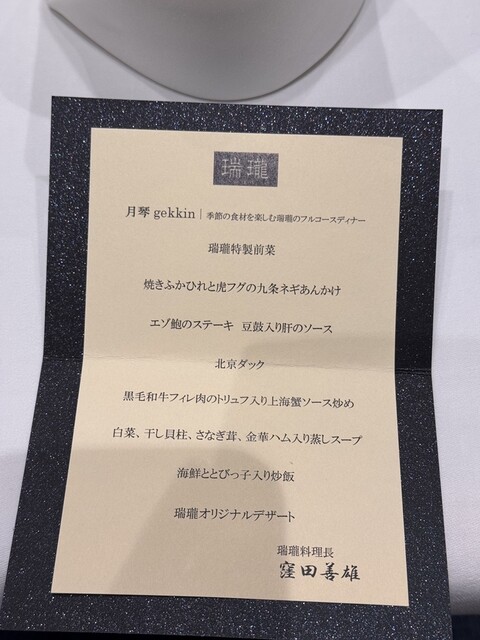 瑞瓏
月琴 gekkin｜季節の食材を楽しむ瑞瓏のフルコースディナー
瑞瓏特製前菜
焼きふかひれと虎フグの九条ネギあんかけ
エゾ鮑のステーキ 豆鼓入り肝のソース
北京ダック
黒毛和牛フィレ肉のトリュフ入り上海蟹ソース炒め
白菜、干し貝柱、さなぎ茸、金華ハム入り蒸しスープ
海鮮ととびっ子入り炒飯
瑞瓏オリジナルデザート
瑞瓏料理長
窪田善雄